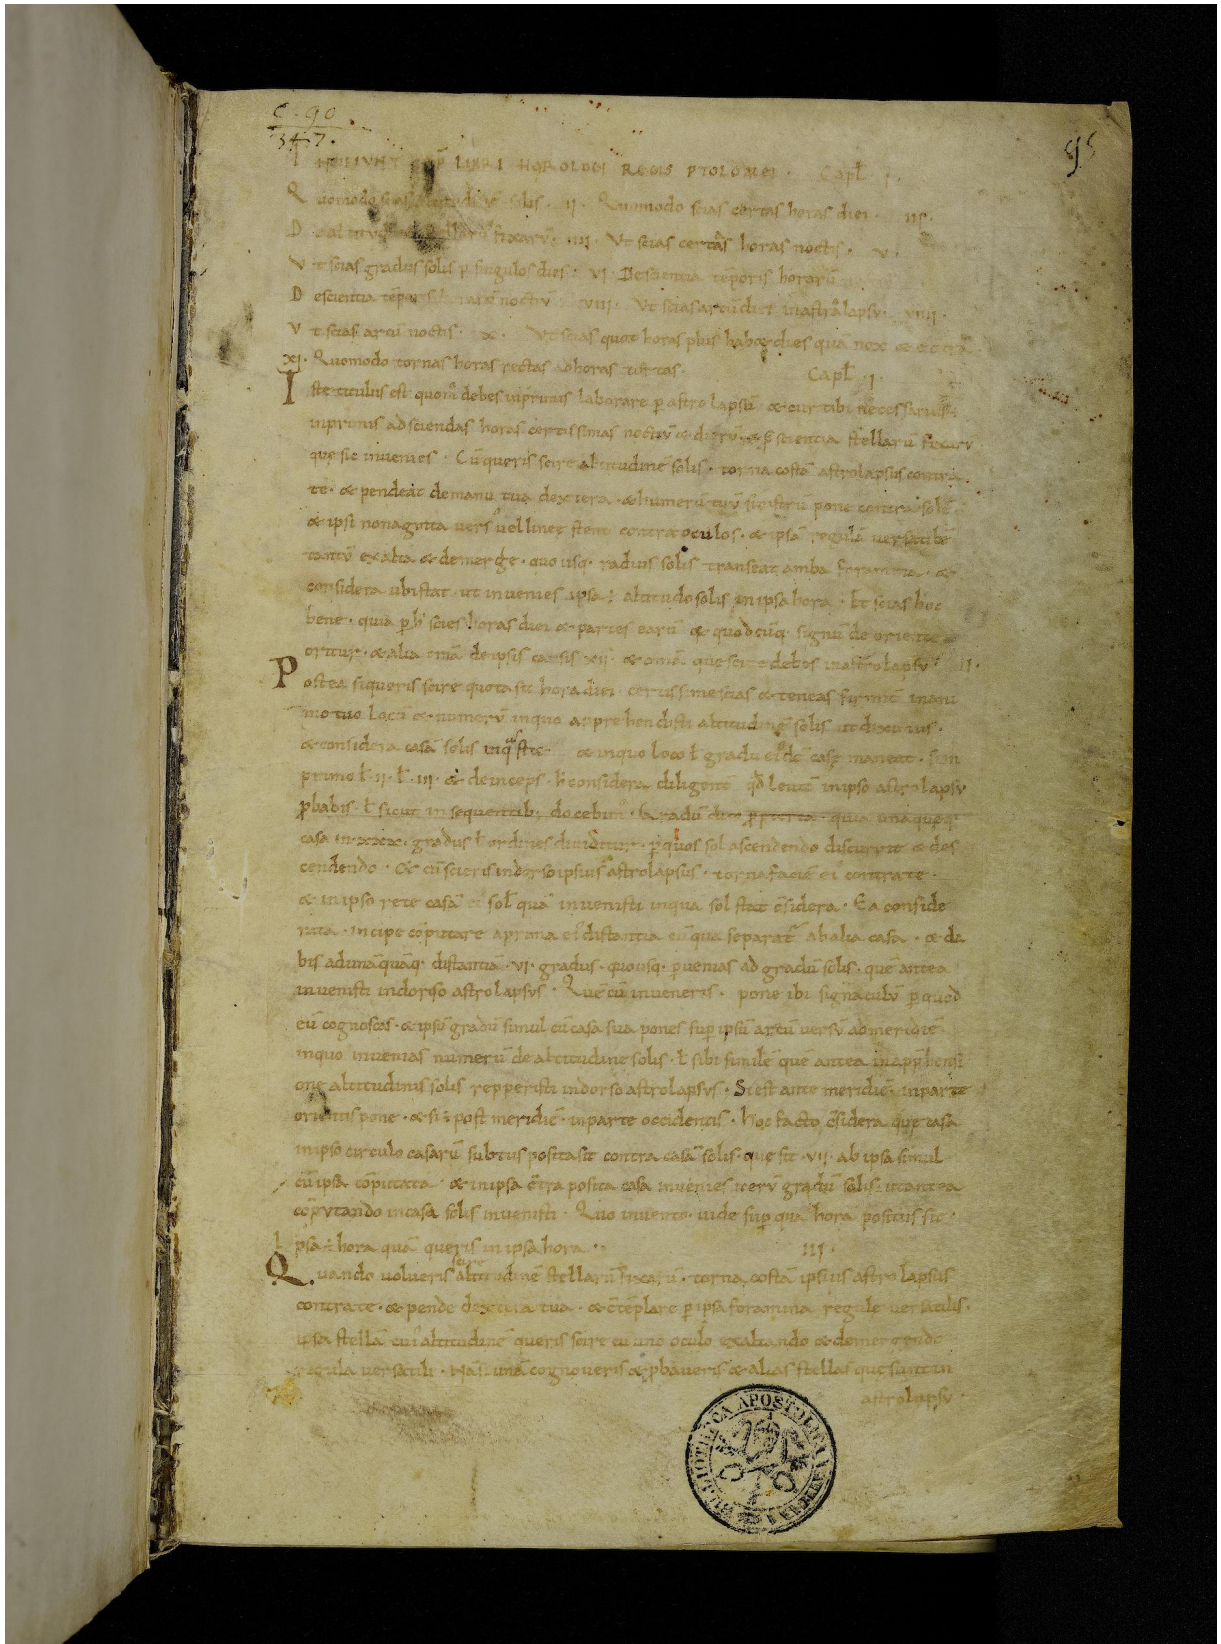 C. 90
347.
95
LIBRI HOROLOGII REGIS PTOLOMEI · Capł I ·
Quomodo scias altitudinē solis · II · Quomodo scias certas horas diei · III ·
De altitudine stellarū fixarū · IIII · Vt scias certas horas noctis · V ·
Vt scias gradus solis p singulos dies : VI · De scientia tēporis horarū
De scientia tēporis horarū noctiū VIII · Vt scias arcū diei in astrolapsu · VIIII ·
Vt scias arcū noctis · X · Vt scias quot horas plus habet dies quā nox &
XI · Quomodo tornas horas rectas ad horas · Capł · I ·
Iste titulus est quom̊ debes inprimis laborare p astrolapsū · & cur tibi necessarius
inprimis ad sciendas horas certissimas noctiū & dierū · & p scientia stellarū fixarū
que sic invenies · Cū queris scire altitudinē solis · torna costā astrolapsus contra
te · & pendeat de manu tua dextera · & humerū tuū sinistrū pone contra solē
& ipsi nonaginta vers̉ vel lineę stent contra oculos · & ipsā regulā versatilē
tantū exalta & demerge · quo usq· radius solis transeat amba foramina · &
considera ubi stat · ut invenies ipsa ÷ altitudo solis in ipsa hora · Et scias hoc
bene · quia p h̓ scies horas diei & partes earū & quodcūq· signū de oriente
oritur · & alia omā de ipsis casis XII · & omā que scire debes in astrolapsu · II ·
Postea si queris scire quota sit hora diei · certissime scias & teneas firmit̄ in ani
mo tuo locū & numerū in quo apprehendisti altitudinē solis ut diximus ·
& considera casā solis in qua stet & in quo loco ł gradu ei̓dē casę maneat · si in
primo ł · II · ł · III · & deinceps · h̓ considera diligent̄ qđ leuit̄ in ipso astrolapsu
p̱babis · ł sicut in sequentib; docebim̓ · Gradū quia unaqueq·
casa in · XXX · gradus ł ordines dividitur · p quos sol ascendendo discurrit & des
cendendo · & cū scieris in dorso ipsius astrolapsus · torna faciē ei contra te ·
& in ipso rete casā sol̄ quā invenisti in qua sol stat c̄sidera · Ea conside
rata · incipe cōputare a prima ei̓ distantia cū qua separat̄ ab alia casa · & da
bis ad unāquāq· distantiā · VI · gradus · quousq· pvenias ad gradū solis · quē antea
invenisti in dorso astrolapsus · Quē cū inveneris · pone ibi signaculū p quod
eū cognoscas · & ipsū gradū simul cū casa sua pones sup ipsū arcū versū ad meridiē
in quo invenias numerū de altitudine solis · ł sibi similē quē antea in apphensi
one altitudinis solis repperisti in dorso astrolapsus · Si est ante meridiē · in parte
orientis pone · & si ÷ post meridiē · in parte occidentis · hoc facto c̄sidera quę casa
in ipso circulo casarū subtus posita sit contra casā solis · que sit · VII · ab ipsa simul
cū ipsa cōputata · & in ipsa c̄tra posita casa invenies iterū gradū solis · ut antea
cōputando in casa solis invenisti · Quo invento · vide sup quā hora positus sit ·
Ipsa ÷ hora quā queris in ipsa hora · III ·
Quando volueris altitudinē stellarū fixarū · torna costā ipsius astrolapsus
contra te · & pende dextera tua · & c̄tēplare p ipsa foramina regulę versatilis ·
ipsā stellā cui̓ altitudinē queris scire cū uno oculo exaltando & demergendo
regula versatili · Nā si unā cognoveris & p̱baveris & alias stellas que sunt in
astrolapsu ·
BIBLIOTHECA APOSTOLICA VATICANA